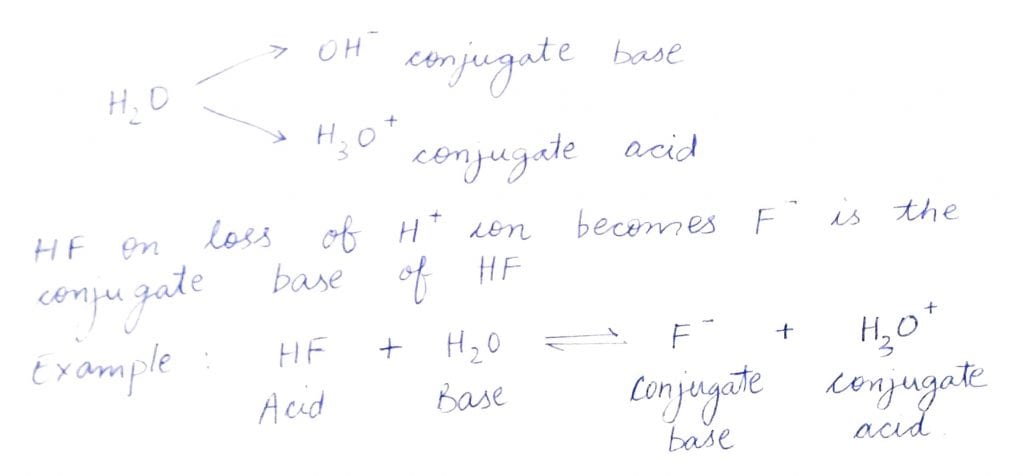 OH⁻ conjugate base
H₂O
H₃O⁺ conjugate acid
HF on loss of H⁺ ion becomes F⁻ is the
conjugate base of HF
Example : HF + H₂O ⇌ F⁻ + H₃O⁺
Acid Base Conjugate conjugate
base acid